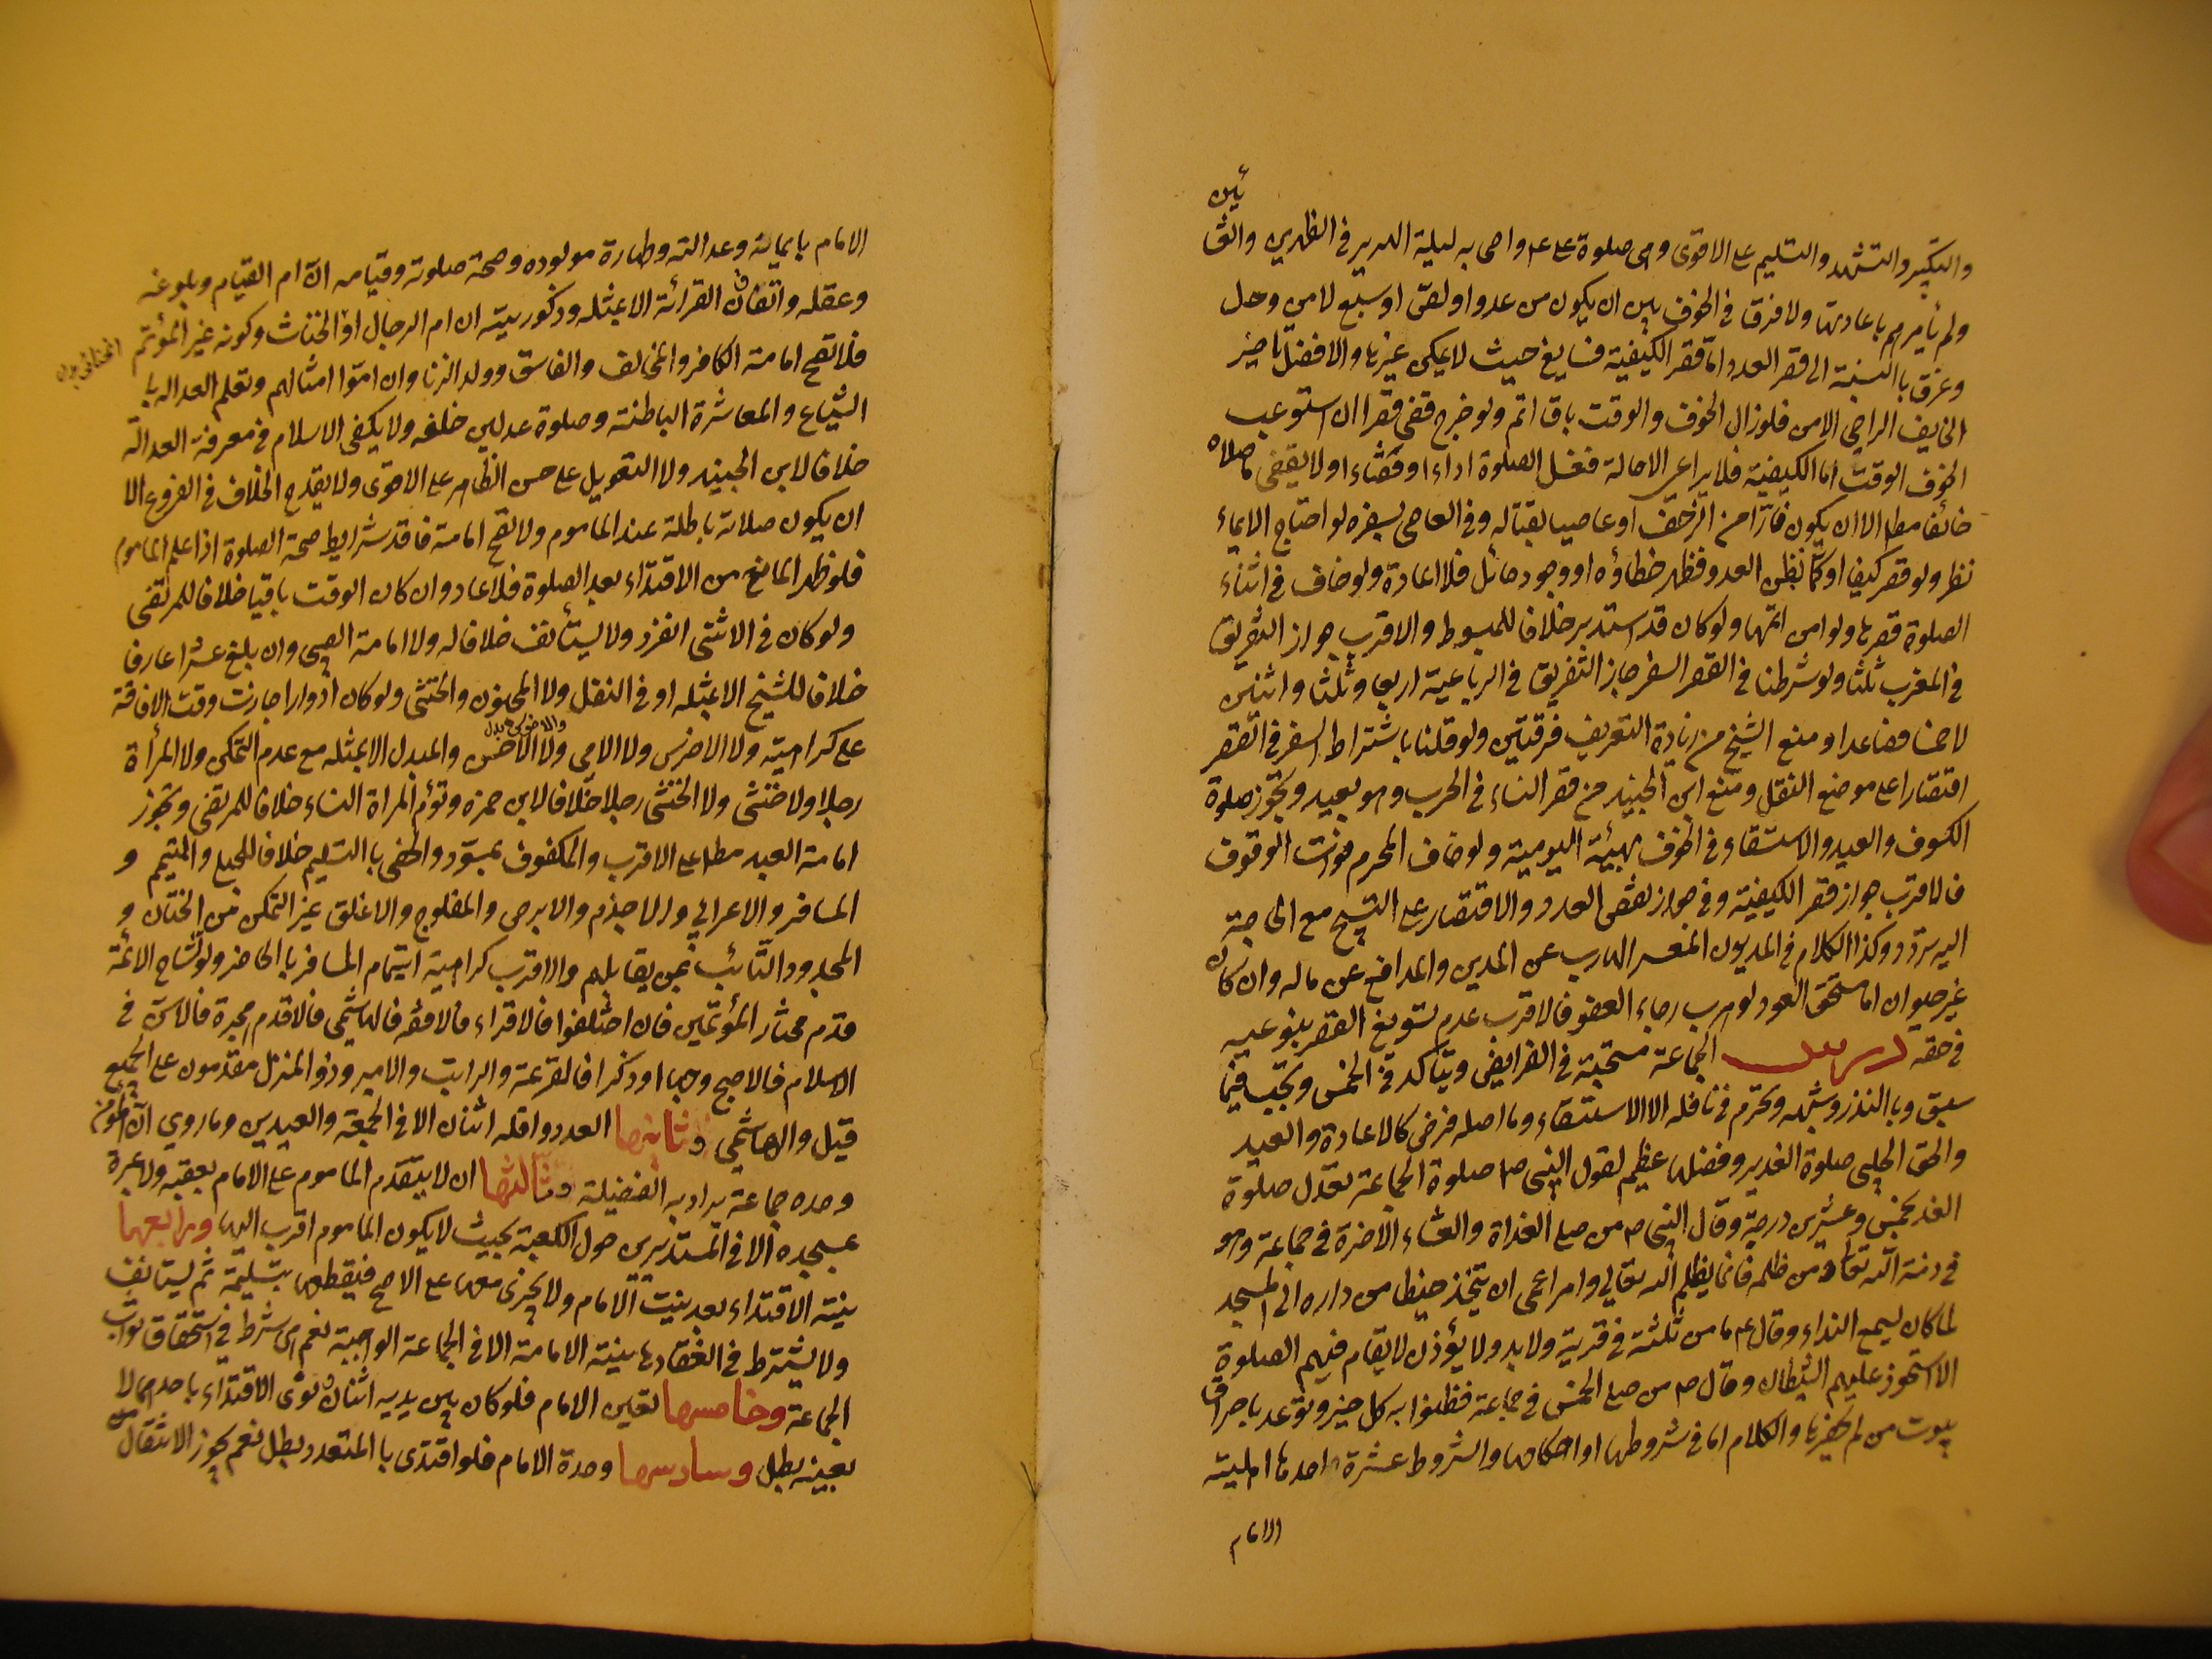 ئين
والتكبير والتشهد والتسليم على الاقوى وهى صلوة على ع واصحابه ليلة الهرير فى الظهرين والعشا
ولم يأمرهم باعادتها ولا فرق فى الخوف بين ان يكون من عدو او لص او سبع لا من وحل
وغرق بالنسبة الى قصر العدد اما قصر الكيفية فسايغ حيث لا يمكن غيرها والافضل تاخير
الخايف الراجى الامن فلو زال الخوف والوقت باق اتم ولو خرج قضى قصرا ان استوعب
الخوف الوقت اما الكيفية فلا يراعى الا حالة فعل الصلوة اداء او قضاء ولا يقضى ما صلاه
خائفا مطلا الا ان يكون فارا من الزحف او عاصيا بقتاله وفى العاصى بسفره لو احتاج الايماء
نظر ولو قصر كيفا او كما بظن العدو فظهر خطاؤه او وجود حائل فلا اعادة ولو خاف فى اثناء
الصلوة قصرها ولو امن اتمها ولو كان قد استدبر خلافا للمبسوط والاقرب جواز التفريق
فى المغرب ثلثا ولو شرطنا فى القصر السفر جاز التفريق فى الرباعية اربعا وثلثا واثنين
لا خمسا فصاعدا ومنع الشيخ من زيادة التفريق فرقتين ولو قلنا باشتراط السفر فى القصر
اقتصارا على موضع النقل ومنع ابن الجنيد من قصر النساء فى الحرب وهو بعيد وتجوز صلوة
الكسوف والعيد والاستسقاء فى الخوف بهيئة اليومية ولو خاف المحرم فوات الوقوف
فالاقرب جواز قصر الكيفية وفى جواز نقص العدد والاقتصار على التسبيح مع الحاجة
اليه تردد وكذا الكلام فى المديون المعسر الهارب عن المدين والمدافع عن ماله وان كان
غير حيوان اما مستحق القود لو هرب رجاء العفو فالاقرب عدم تسويغ القصر بنوعيه
فى حقه درس الجماعة مستحبة فى الفرايض ويتاكد فى الخمس وتجب فيما
سبق وبالنذر وشبهه وتحرم فى نافله الا الاستسقاء وما اصله فرض كالاعادة والعيد
والحق الحلبى صلوة الغدير وفضلها عظيم لقول النبى ص صلوة الجماعة تعدل صلوة
الفذ بخمس وعشرين درجة وقال النبى ص من صلى الغداة والعشاء الاخرة فى جماعة وهو
فى ذمة الله تعالى ومن ظلمه فانما يظلم الله تعالى وامر اعمى ان يتخذ حبلا من داره الى المسجد
لما كان يسمع النداء وقال ع ما من ثلثة فى قرية ولا بد ولا يؤذن لا يقام فيهم الصلوة
الا استحوذ عليهم الشيطان وقال ص من صلى الخمس فى جماعة فظنوا به كل خير وتوعد باحراق
بيوت من لم يحضرها والكلام اما فى شروطها او احكامها والشروط عشرة احدها اهلية
الامام
الامام بايمانه وعدالته وطهارة مولوده وصحة صلوته وقيامه ان ام القيام وبلوغه
وعقله واتقان القرائة الا بمثله وذكوريته ان ام الرجال او الخناث وكونه غير المؤتم
فلا تصح امامة الكافر والمخالف والفاسق وولد الزنا وان امّوا امثالهم وتعلم العدالة با
الشياع والمعاشرة الباطنة وصلوة عدلين خلفه ولا يكفى الاسلام فى معرفة العدالة
خلافا لابن الجنيد ولا التعويل على حسن الظاهر على الاقوى ولا يقدح الخلاف فى الفروع الا
ان يكون صلاته باطلة عند الماموم ولا تصح امامة فاقد شرايط صحة الصلوة اذا علم الماموم
فلو ظهر المانع من الاقتداء بعد الصلوة فلا اعادة وان كان الوقت باقيا خلافا للمرتضى
ولو كان فى الاثنى انفرد ولا يستأنف خلافا له ولا امامة الصبى وان بلغ عشرا عارفا
خلافا للشيخ الا بمثله او فى النفل ولا المجنون والخنثى ولو كان ادوارا جازت وقت الافاقة
على كراهية ولا الاخرس ولا الامى ولا الاخس والمبدل الا بمثله مع عدم التمكن ولا المرأة
رجلا ولا خنثى ولا الخنثى رجلا خلافا لابن حمزه وتؤم المراة النساء خلافا للمرتضى وتجوز
امامة العبد مطلا على الاقرب والمكفوف بمسدد والخصى بالتسليم خلافا للحلبى والمتيمم و
المسافر والاعرابى والاجذم والابرص والمفلوج والاغلق غير المتمكن من الختان و
المحدود التائب بمن يقابلهم والاقرب كراهية ايتمام المسافر بالحاضر ولو تشاح الائمة
قدم مختار المؤتمين فان اختلفوا فالاقراء فالافقه فالهاشمى فالاقدم هجرة فالاسن فى
الاسلام فالاصبح وجها او ذكرا فالقرعة والراتب والامير وذو المنزل مقدمون على الجميع
قيل والهاشمى وثانيها العدد واقله اثنان الا فى الجمعة والعيدين وما روى ان المؤمن
وحده جماعة يراد به الفضيلة وثالثها ان لا يتقدم الماموم على الامام بعقبه ولا عبرة
بمسجده الا فى المستديرين حول الكعبة بحيث لا يكون الماموم اقرب اليها ورابعها
نية الاقتداء بعد نية الامام ولا يجزى معها على الاصح فيقطعها بتسليمة ثم يستانف
ولا يشترط فى انعقادها نية الامامة الا فى الجماعة الواجبة نعم هى شرط فى استحقاق ثواب
الجماعة وخامسها تعين الامام فلو كان بين يديه اثنان ونوى الاقتداء باحدهما لا
بعينه بطل وسادسها وحدة الامام فلو اقتدى بالمتعدد بطل نعم يجوز الانتقال من